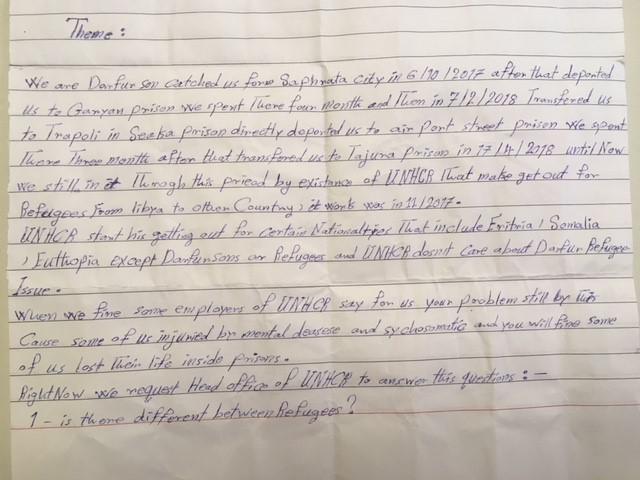 Theme:
We are Darfur son catched us form Saphrata city in 6/10/2017 after that deported
us to Garyan prison we spent There four month and Then in 7/2/2018 Transfered us
to Trapoli in Seeka prison directly deported us to air Port street prison we spent
There Three month after that transfered us to Tajura prison in 17/4/2018 until Now
we still in it Throgh this priead by existance of UNHCR That make get out for
Refugees From libya to other Country, it work was in 11/2017.
UNHCR start his getting out for certain Nationaltyies That include Eritria, Somalia
, Euthopia except Darfursons or Refugees and UNHCR dosnit Care about Darfur Refugee
Issue.
when we fine some employers of UNHCR say for us your problem still by This
Cause some of us injuried by mental deasese and sychosomatic and you will fine some
of us lost Their life inside prisons.
Right Now we request Head office of UNHCR to answer this questions: -
1 - is there different between Refugees?